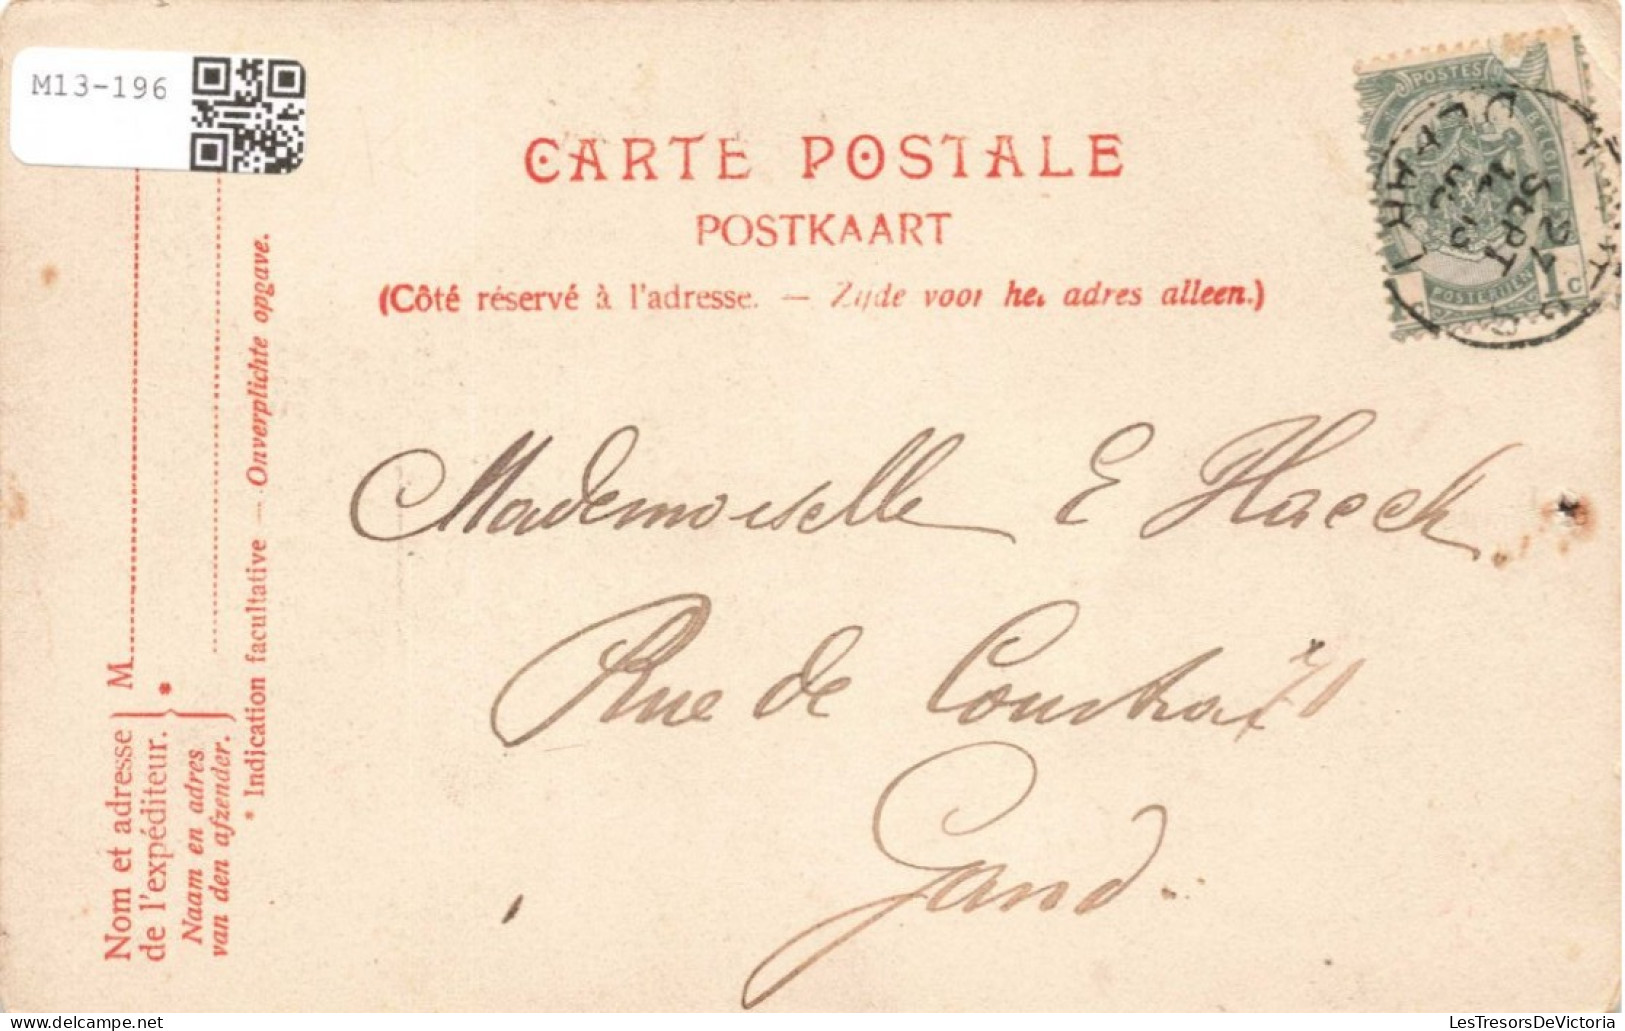 M13-196
CARTE POSTALE
POSTKAART
(Côté réservé à l'adresse. — Zijde voor het adres alleen.)
POSTES
BELGIQUE
POSTERIJEN
1 c
SEPT
Mademoiselle E Haeck
Rue de Courtrai 71
Gand.
Nom et adresse M
de l'expéditeur. *
Naam en adres
van den afzender.
* Indication facultative — Onverplichte opgave.
LesTresorsDeVictoria